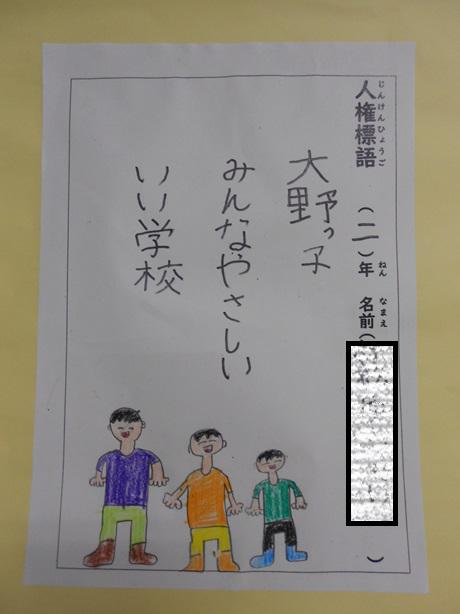 人権標語 (二)年 名前(
じんけんひょうご ねん なまえ
大野っ子
みんなやさしい
いい学校